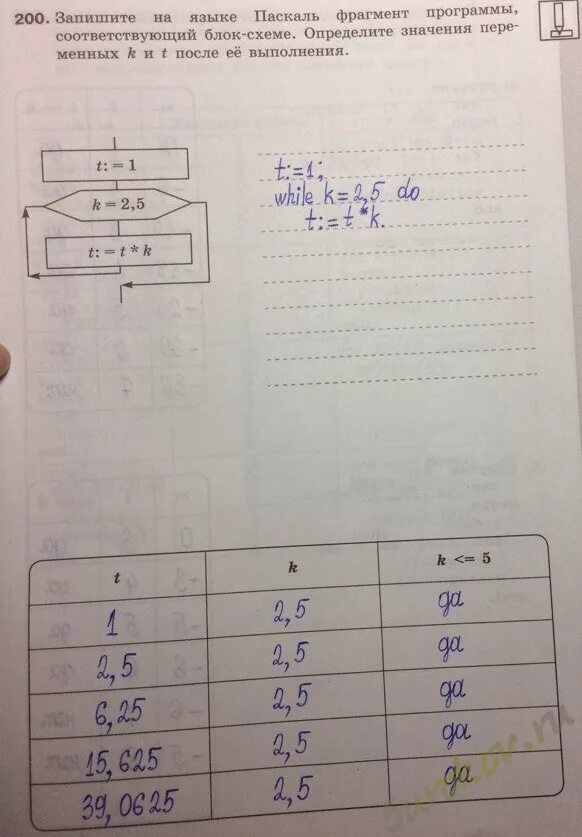 200. Запишите на языке Паскаль фрагмент программы,
соответствующий блок-схеме. Определите значения пере-
менных k и t после её выполнения.
t: = 1
k = 2,5
t: = t * k
t:=1;
while k=2,5 do
t:=t*k.
t k k <= 5
1 2,5 да
2,5 2,5 да
6,25 2,5 да
15,625 2,5 да
39,0625 2,5 да